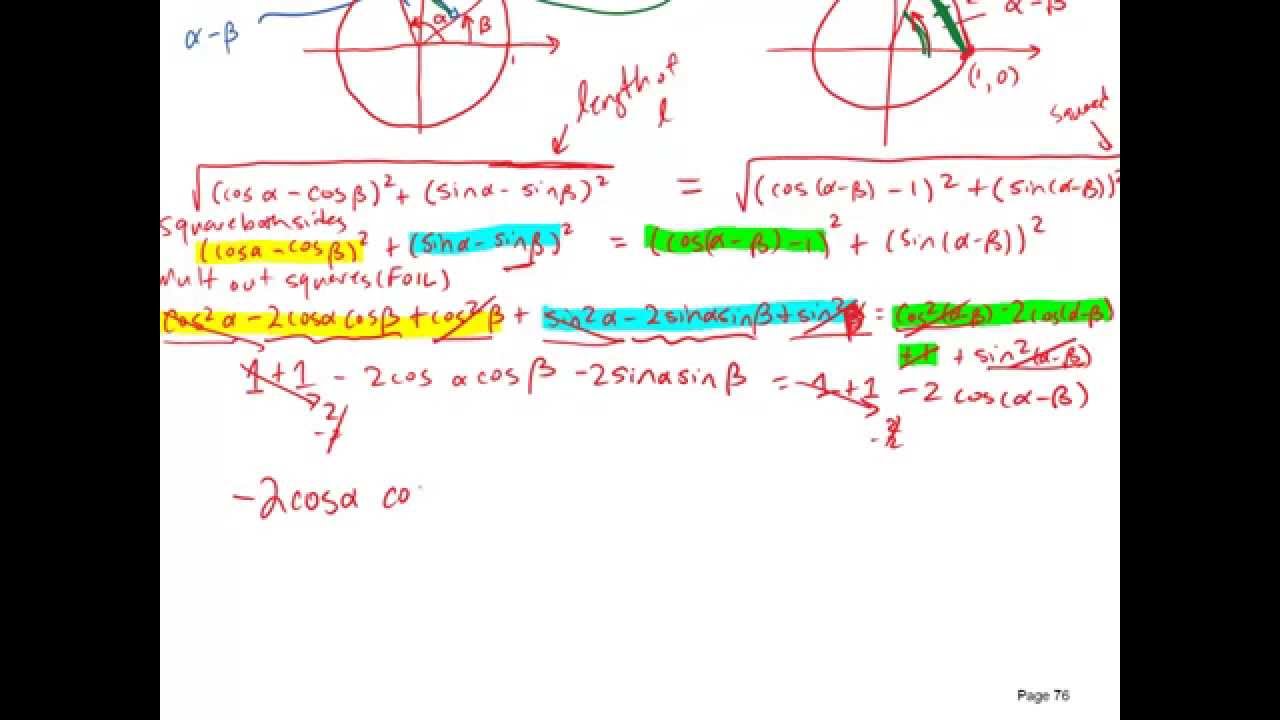 α-β
α
β
1
α-β
(1,0)
length of
l
squared
√(cosα-cosβ)²+(sinα-sinβ)² = √(cos(α-β)-1)²+(sin(α-β))²
square both sides
(cosα-cosβ)²+(sinα-sinβ)² = (cos(α-β)-1)²+(sin(α-β))²
Mult out squares (FOIL)
cos²α-2cosαcosβ+cos²β+sin²α-2sinαsinβ+sin²β=cos²(α-β)-2cos(α-β)
+1+sin²(α-β)
1+1-2cosαcosβ-2sinαsinβ=1+1-2cos(α-β)
2
-2
-2cosα co
Page 76